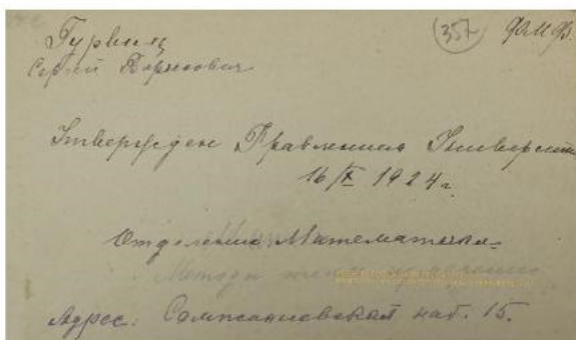 Гурвиц (357) Фам.Ф.
Сергей Борисович
Утвержден Правлением Университе
16/X 1924 г.
Отделение Математики
Методы
Адрес: Сампсониевская наб. 15.